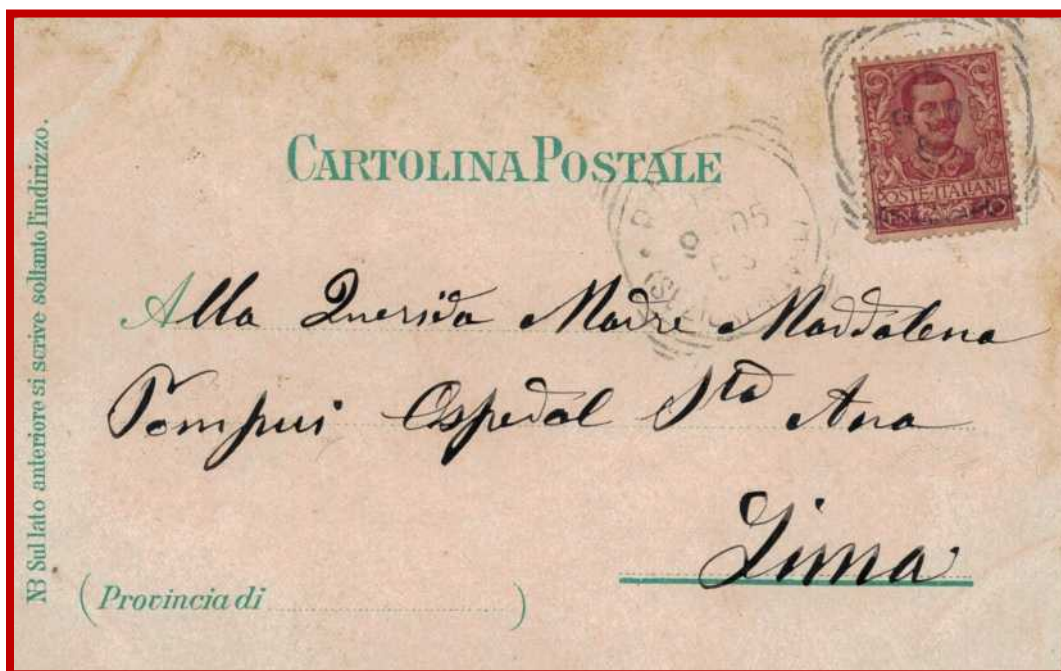 NB Sul lato anteriore si scrive soltanto l'indirizzo.
CARTOLINA POSTALE
POSTE·ITALIANE
05
Alla Querida Madre Maddalena
Pompei Ospedal Sta Ana
Lima
(Provincia di )